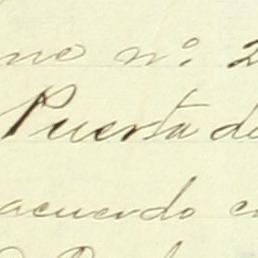 no nº: 2
Puerta de
acuerdo c